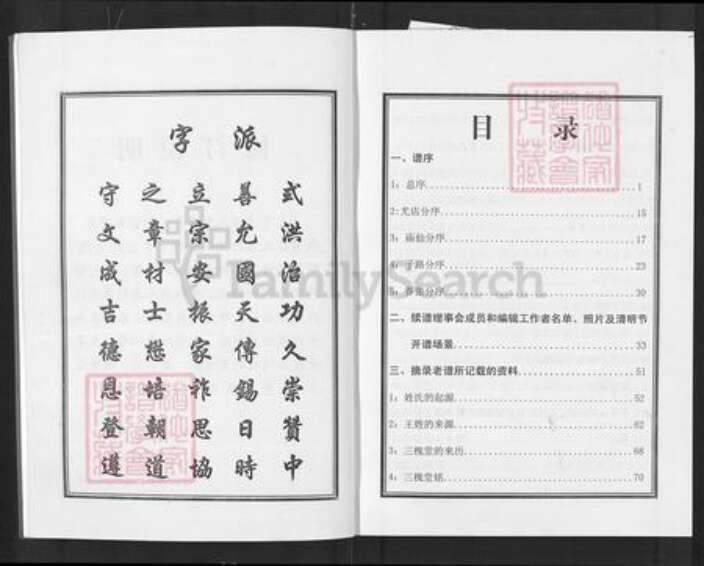 派字
式洪治功久崇贊中
善允國天傳錫日時
立宗安振家祚思協
之章材士懋培朝道
守文成吉德恩登遵
目录
一、谱序
1：总序 1
2:尤店分序 15
3：庙仙分序 17
4：子路分序 23
5： 30
二、续谱理事会成员和编辑工作者名单、照片及清明节
开谱场景 33
三、摘录老谱所记载的资料 51
1：姓氏的起源 52
2：王姓的来源 62
3：三槐堂的来历 68
4：三槐堂铭 70
FamilySearch